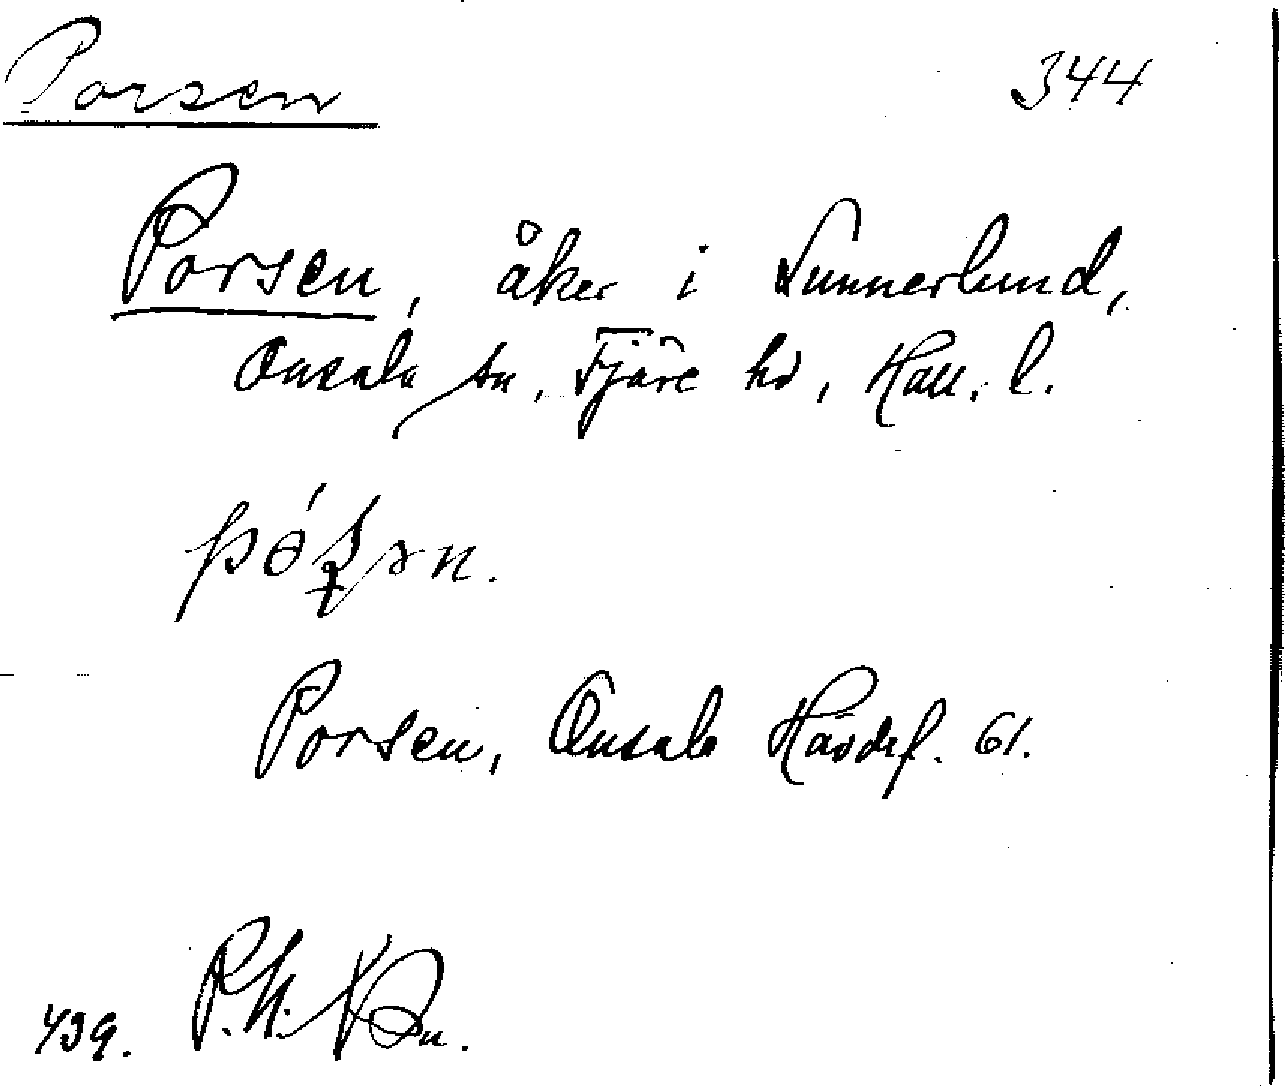 Porsen 344
Porsen, åker i Sunnerlund,
Onsala sn, Fjäre hd, Hall. l.
Porsen, Onsala Hävdef. 61.
439.